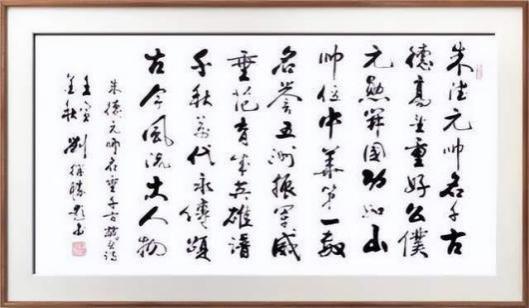 朱德元帅名千古
德高望重好公僕
元勋開國功如山
帅位中華第一
名誉五洲振军威
垂范育英雄譜
千秋万代永傳頌
古今風流大人物
朱德元帅垂千古藏头诗
壬寅
金秋 劉